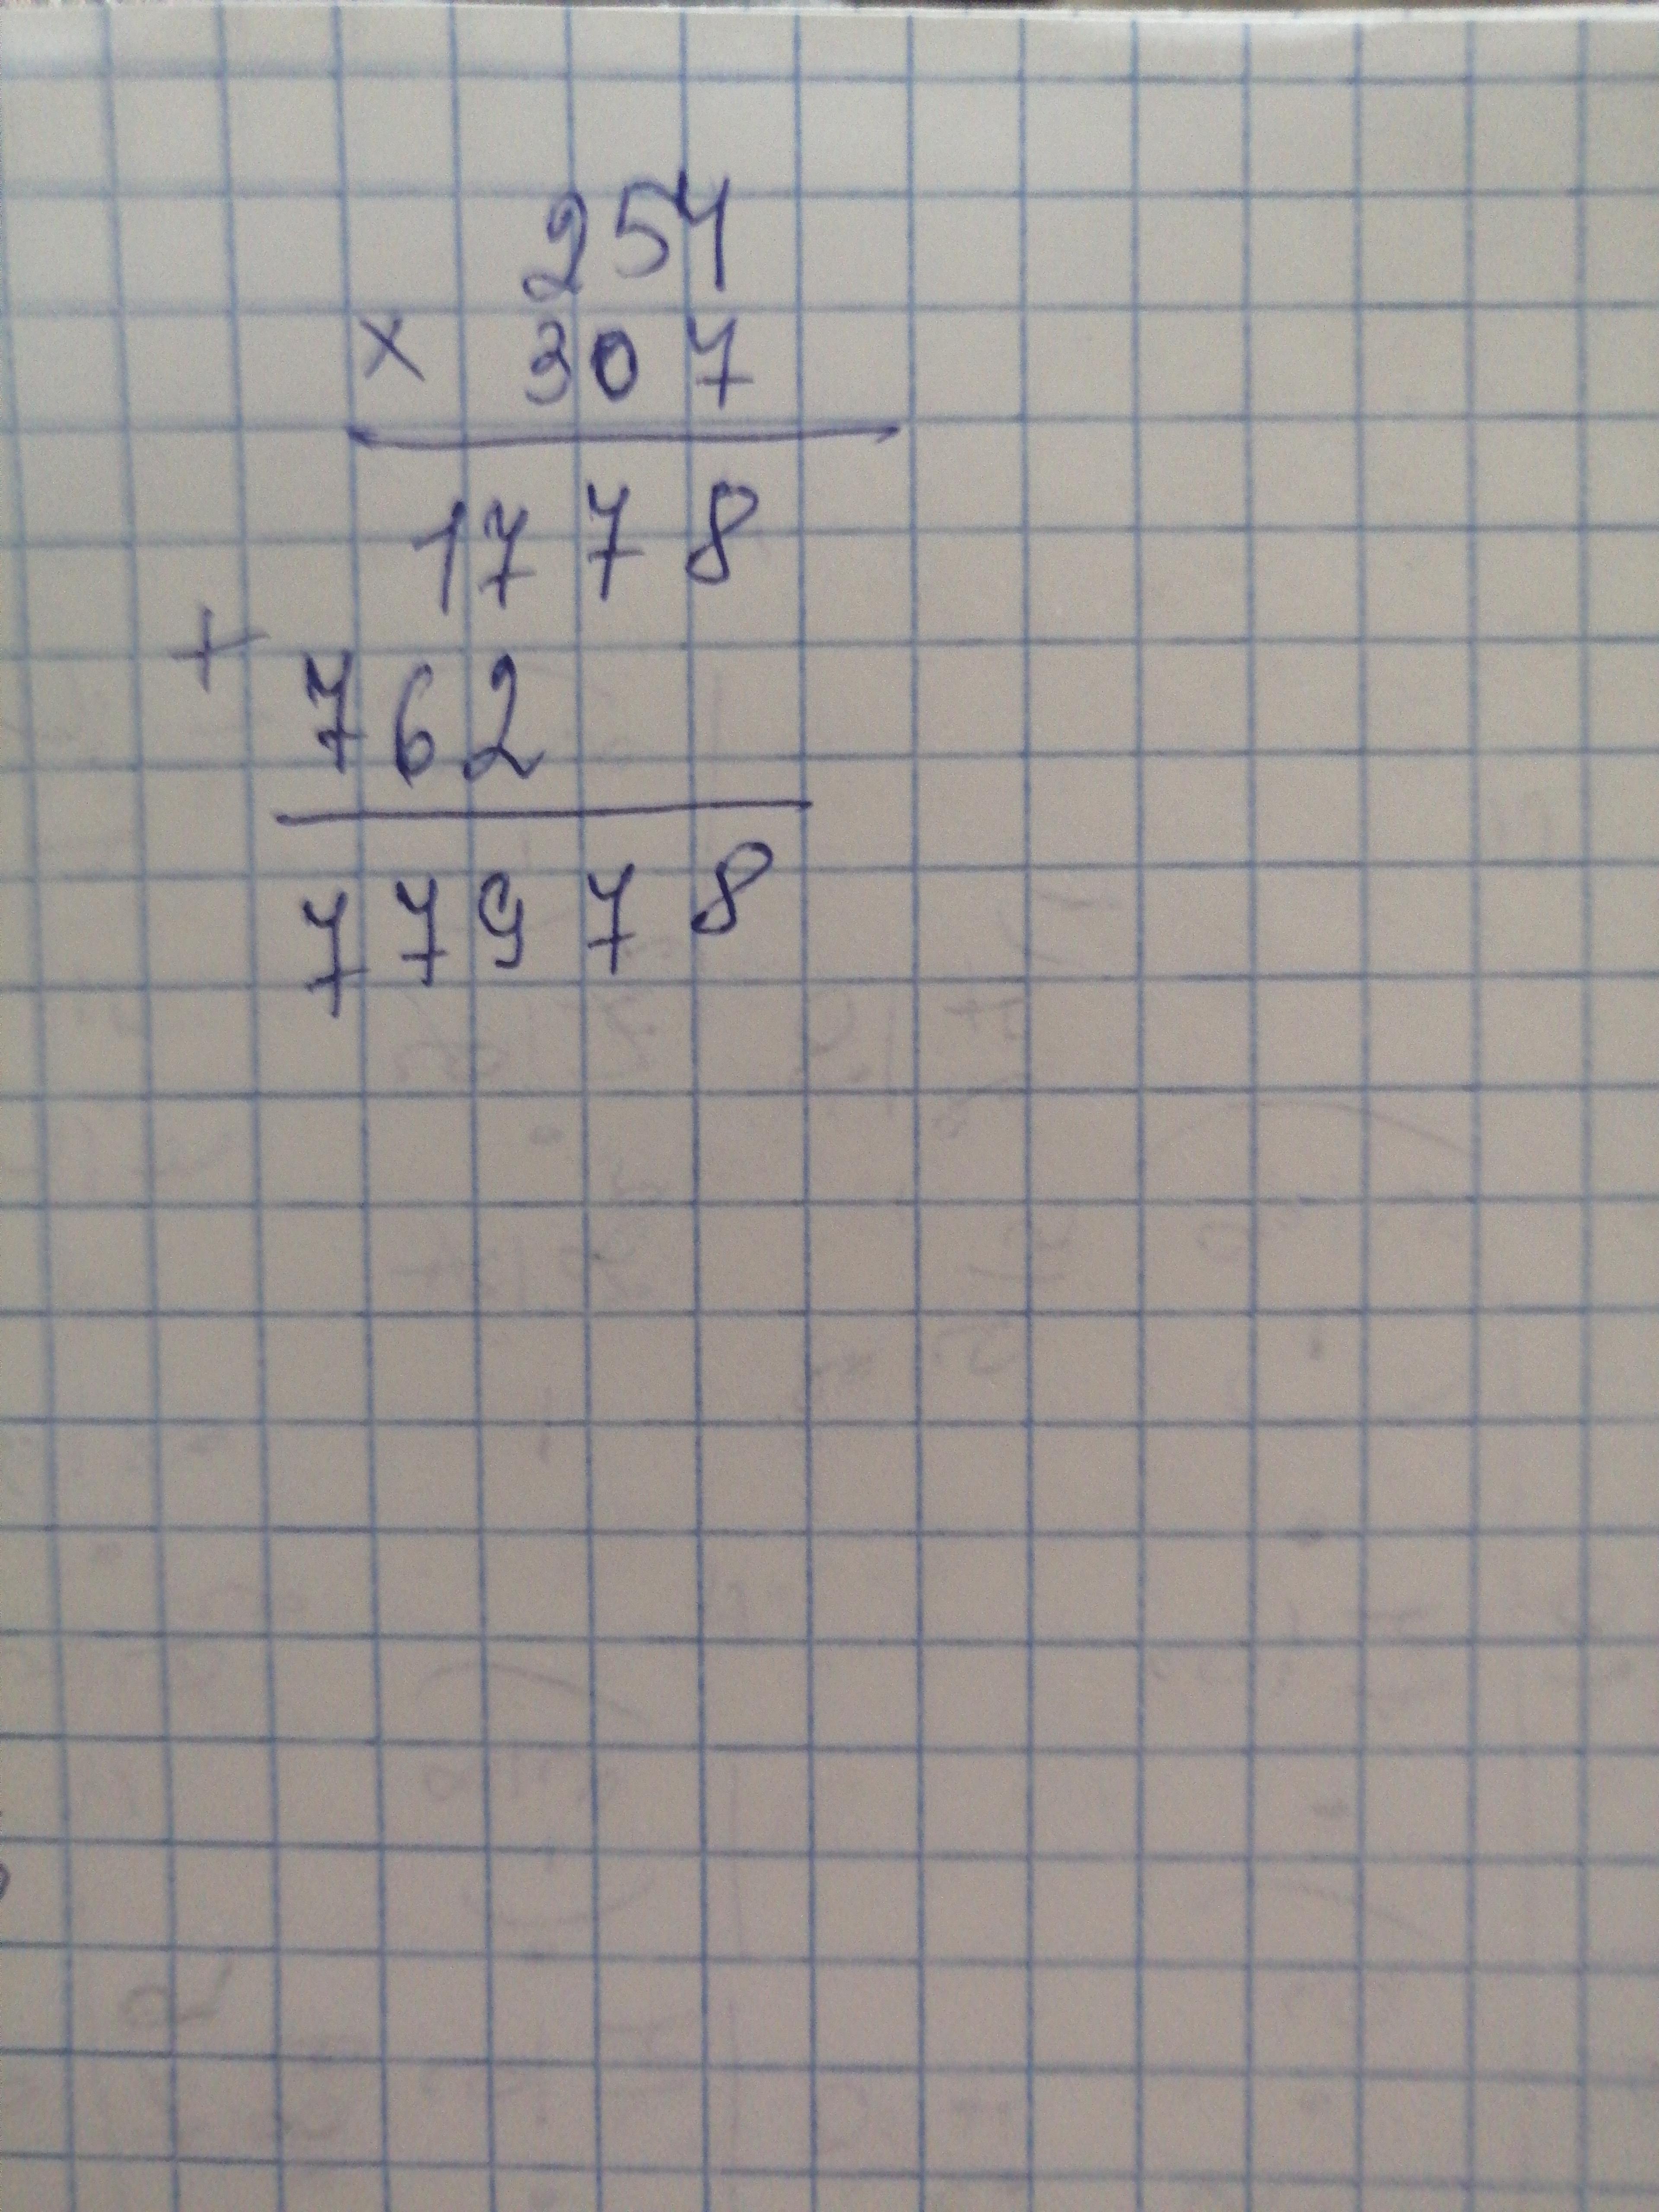 254
× 307
1778
+
762
77978